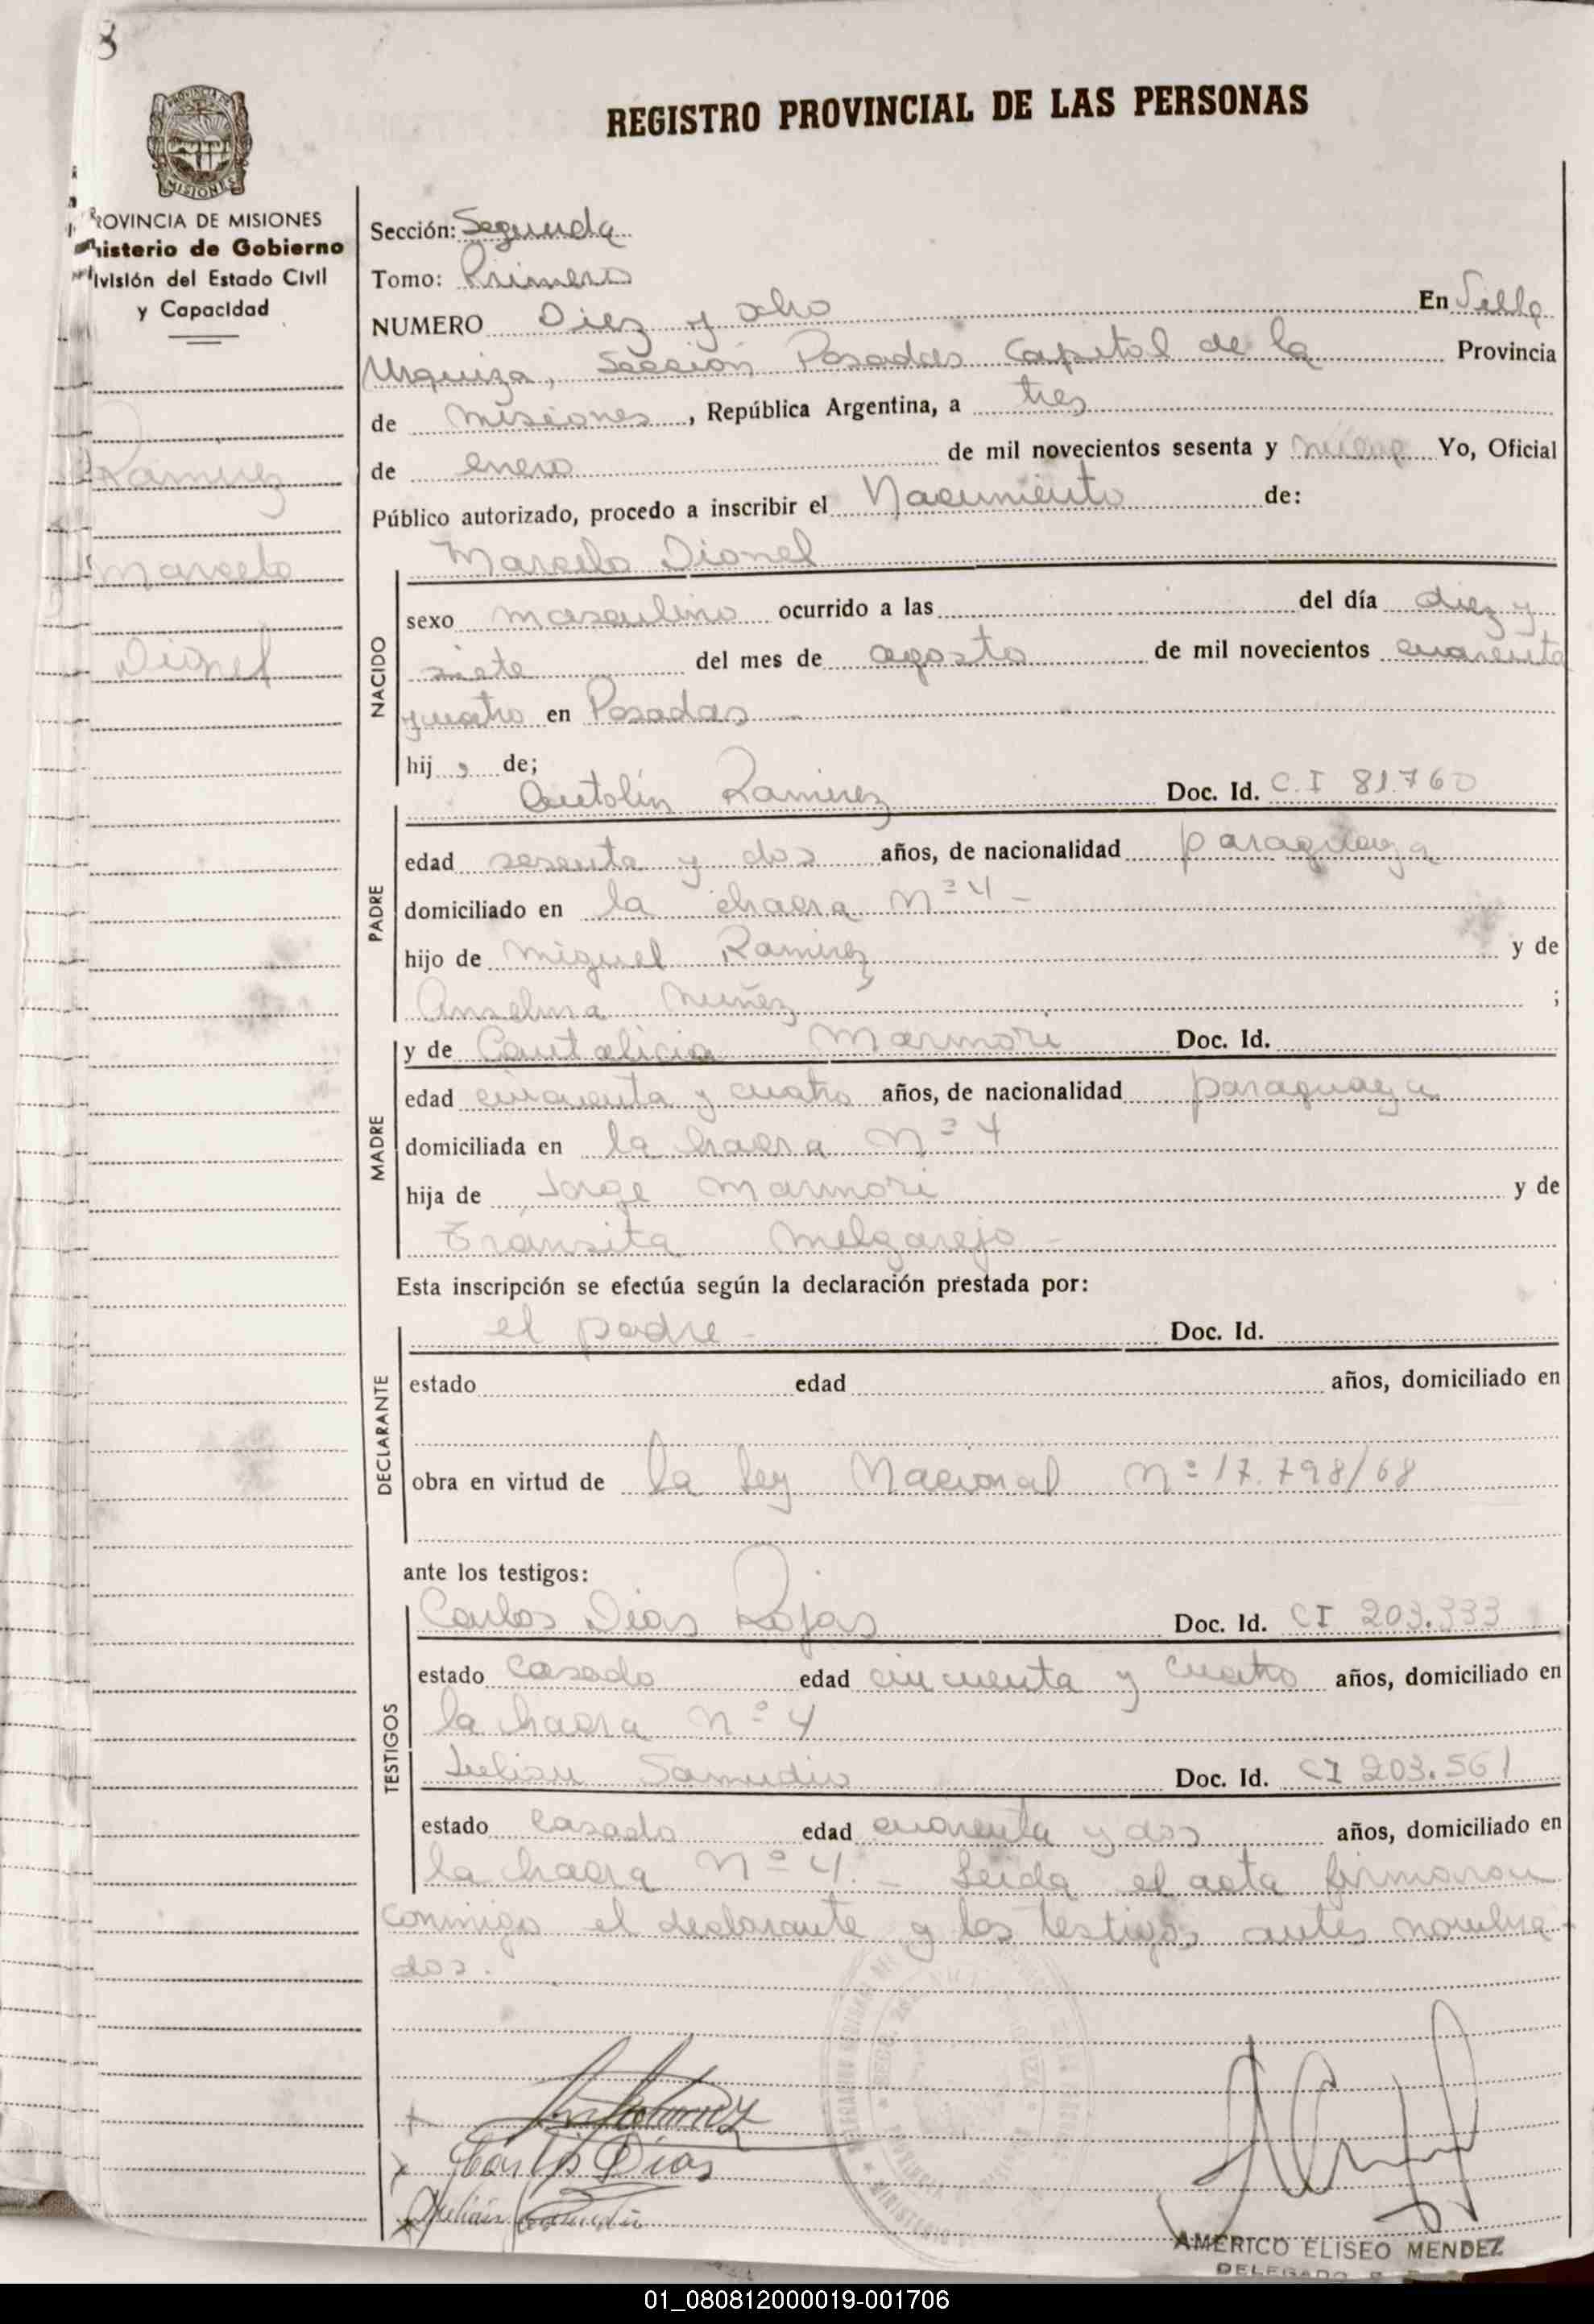 8
REGISTRO PROVINCIAL DE LAS PERSONAS
MISIONES
PROVINCIA DE MISIONES
Ministerio de Gobierno
División del Estado Civil
y Capacidad
Ramirez
Marcelo
Dionel
Sección: Segunda
Tomo: Primero
NUMERO Diez y ocho En Villa
Urquiza, Sección Posadas Capital de la Provincia
de Misiones, República Argentina, a tres
de enero de mil novecientos sesenta y nueve Yo, Oficial
Público autorizado, procedo a inscribir el Nacimiento de:
Marcelo Dionel
NACIDO
sexo masculino ocurrido a las del día diez y
siete del mes de agosto de mil novecientos cuarenta
y cuatro en Posadas
hij o de;
PADRE
Antolín Ramirez Doc. Id. C.I 81.760
edad sesenta y dos años, de nacionalidad paraguaya
domiciliado en la chacra Nº 4 -
hijo de Miguel Ramirez y de
Anselma Nuñez ;
MADRE
y de Cantalicia Marmori Doc. Id.
edad cincuenta y cuatro años, de nacionalidad paraguaya
domiciliada en la hacra Nº 4
hija de Jorge Marmori y de
Tránsita Melgarejo -
Esta inscripción se efectúa según la declaración prestada por:
DECLARANTE
el padre - Doc. Id.
estado edad años, domiciliado en
obra en virtud de la Ley Nacional Nº 17.798/68
ante los testigos:
TESTIGOS
Carlos Dias Rojas Doc. Id. CI 203.333
estado casado edad cincuenta y cuatro años, domiciliado en
la hacra Nº 4
Julian Samudio Doc. Id. CI 203.561
estado casado edad cuarenta y dos años, domiciliado en
la hacra Nº 4. - Leida el acta firmaron
conmigo el declarante y los testigos antes nombra-
dos.
Carlos Dias
Julián Samudio
AMERICO ELISEO MENDEZ
DELEGADO
01_080812000019-001706